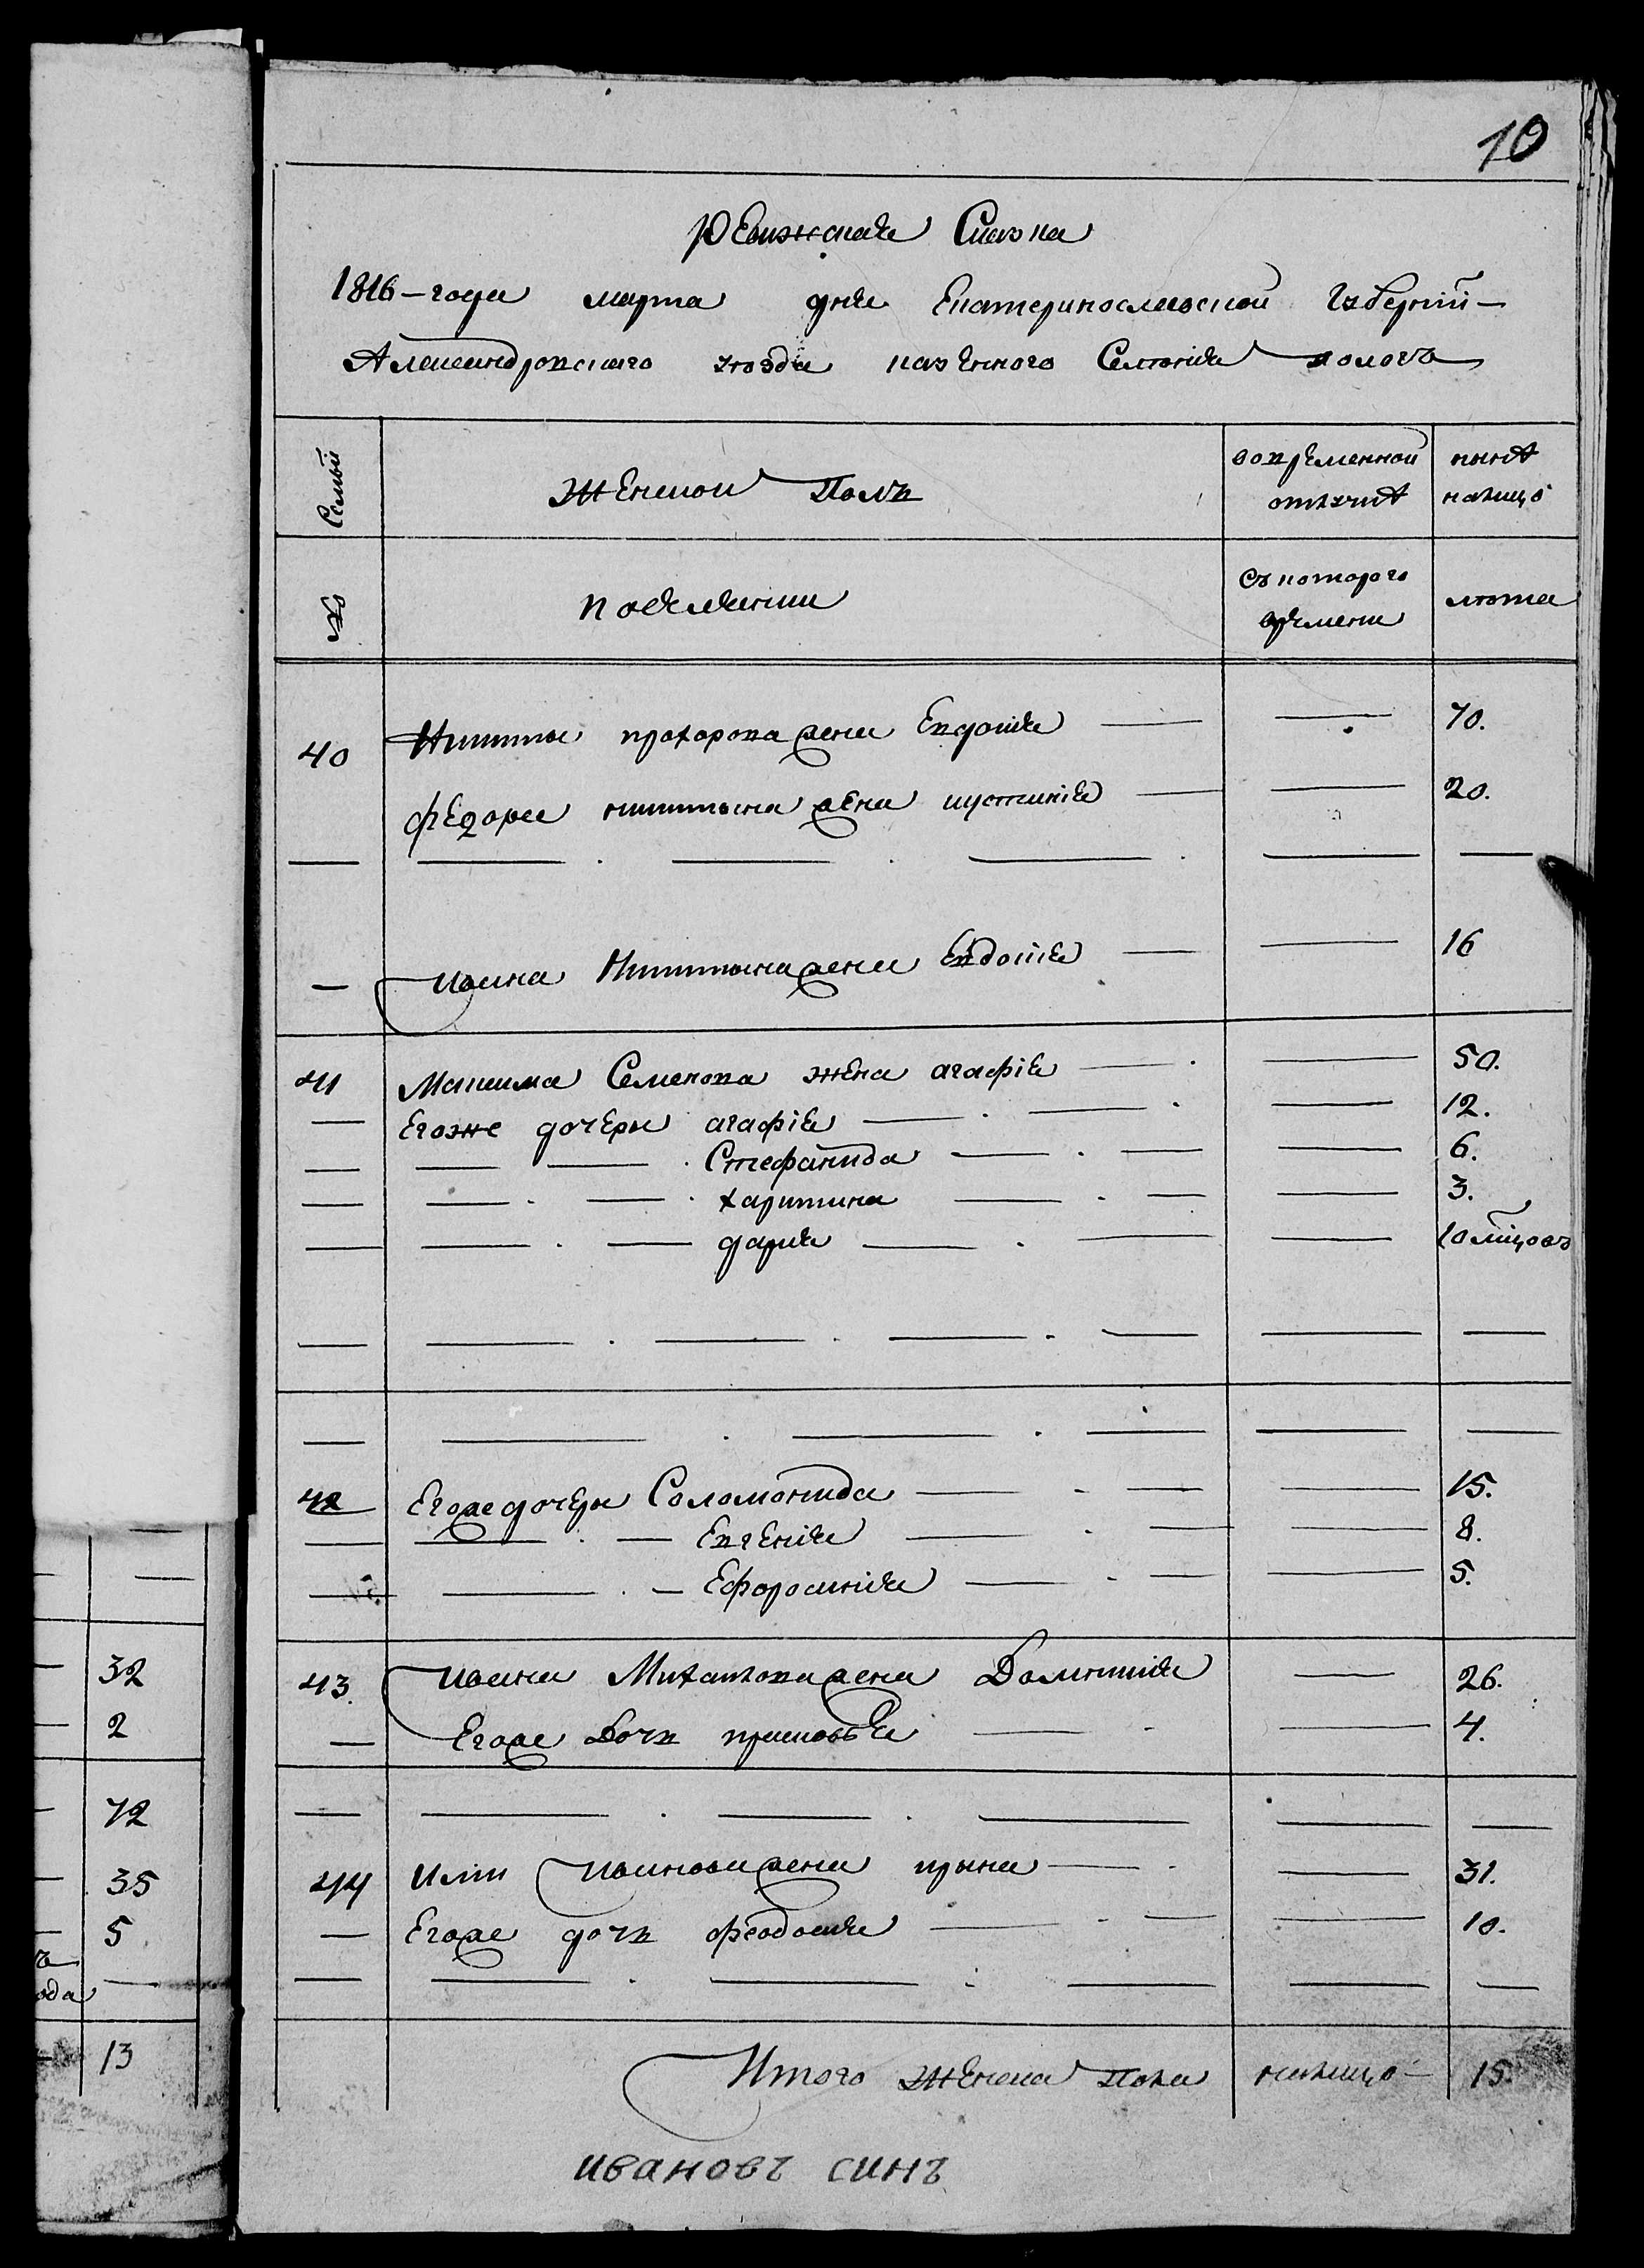 10
ревижская Сказка
1816-года марта дня Екатеринославской Губерніи-
Александровскаго уѣзда казенного Селенія пологъ
Семьи
женской Полъ
во временной отлучкѣ
нынѣ налицо
№
поселянии
съ которого времени
лѣта
40 Никиты прохорова жена Евдокія 70.
федора никитына жена иустинія 20.
Ивана Никитына жена Евдокія 16
41 Максима Семенова жена агафія 50.
Егоже дочеры агафія 12.
Стефанида 6.
харитина 3.
дарія 10 мѣцовъ
42 Егоже дочеры Соломонида 15.
Евгенія 8.
Ефоросинія 5.
43 Ивана Михаилова жена Домникія 26.
Егоже Дочъ прасковѣя 4.
44 Илии Иванова жена ирына 31.
Егоже дочъ феодосия 10.
Итого женска пола налицо- 15.
ивановъ синъ
32
2
72
35
5
ода
13